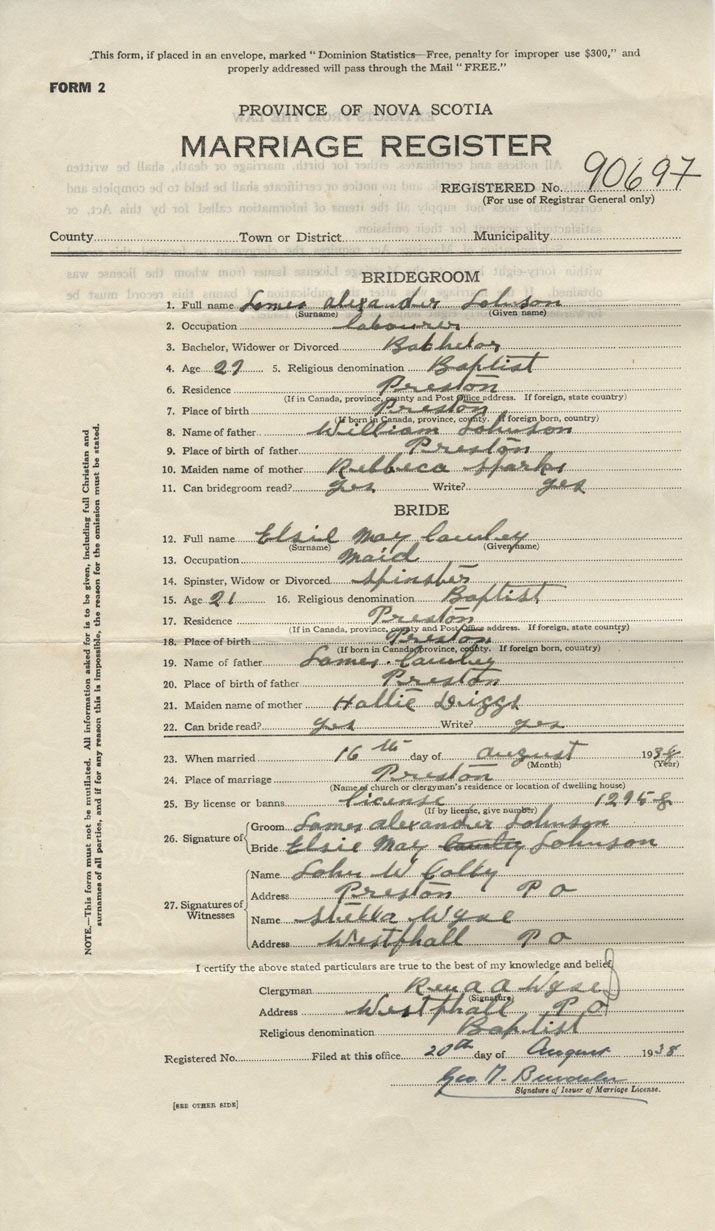 This form, if placed in an envelope, marked "Dominion Statistics—Free, penalty for improper use $300," and
properly addressed will pass through the Mail "FREE."
FORM 2
PROVINCE OF NOVA SCOTIA
MARRIAGE REGISTER
REGISTERED No. 90697
(For use of Registrar General only)
County Town or District Municipality
BRIDEGROOM
1. Full name James alexander Johnson
(Surname) (Given name)
2. Occupation labourer
3. Bachelor, Widower or Divorced Bachelor
4. Age 27 5. Religious denomination Baptist
6. Residence Preston
(If in Canada, province, county and Post Office address. If foreign, state country)
7. Place of birth Preston
(If born in Canada, province, county. If foreign born, country)
8. Name of father William Johnson
9. Place of birth of father Preston
10. Maiden name of mother Rebbeca Sparks
11. Can bridegroom read? yes Write? yes
BRIDE
12. Full name Elsie May
(Surname) (Given name)
13. Occupation maid
14. Spinster, Widow or Divorced Spinster
15. Age 21 16. Religious denomination Baptist
17. Residence Preston
(If in Canada, province, county and Post Office address. If foreign, state country)
18. Place of birth Preston
(If born in Canada, province, county. If foreign born, country)
19. Name of father James
20. Place of birth of father Preston
21. Maiden name of mother Hattie Driggs
22. Can bride read? yes Write? yes
23. When married 16th day of august 1938
(Month) (Year)
24. Place of marriage Preston
(Name of church or clergyman's residence or location of dwelling house)
25. By license or banns license 12958
(If by license, give number)
26. Signature of
Groom James alexander Johnson
Bride Elsie May Johnson
27. Signatures of Witnesses
Name John W Colby
Address Preston P O
Name Wyse
Address Westphall P O
I certify the above stated particulars are true to the best of my knowledge and belief,
Clergyman Rev a a Wyse
(Signature)
Address Westphall P O
Religious denomination Baptist
Registered No. Filed at this office 20th day of August 1938
Geo.
Signature of Issuer of Marriage License.
[SEE OTHER SIDE]
NOTE.—This form must not be mutilated. All information asked for is to be given, including full Christian and
surnames of all parties, and if for any reason this is impossible, the reason for the omission must be stated.